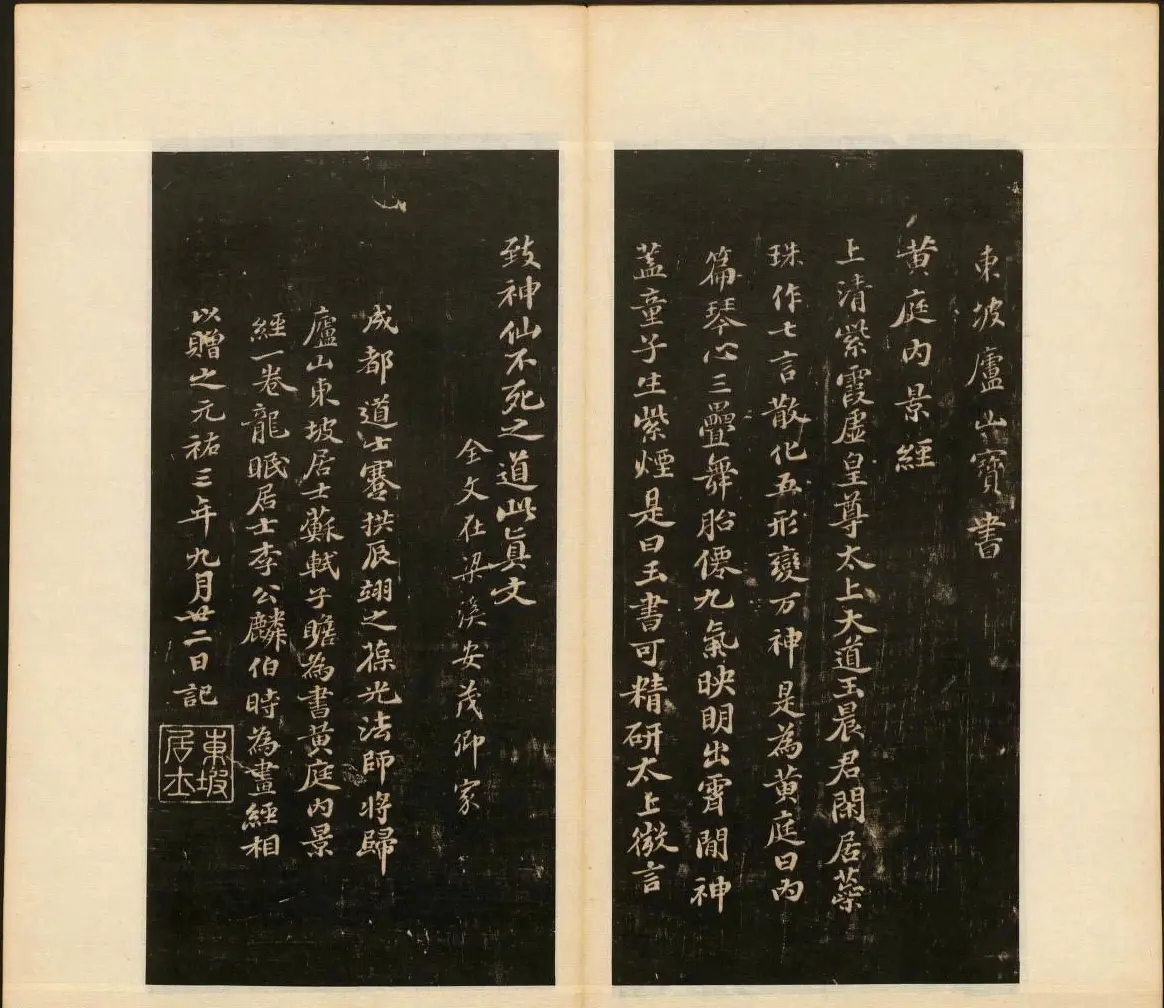 東坡廬山寶書
黄庭内景經
上清紫霞虛皇尊太上大道玉晨君閑居蘂
珠作七言散化五形變万神是為黄庭曰内
篇琴心三疊舞胎僊九氣映明出霄間神
蓋童子生紫煙是曰玉書可精研太上微言
致神仙不死之道此真文
全文在梁溪安茂卿家
成都道士蹇拱辰翊之葆光法師將歸
廬山東坡居士蘇軾子瞻為書黄庭内景
經一卷龍眠居士李公麟伯時為畫經相
以贈之元祐三年九月廿二日記
東坡居士